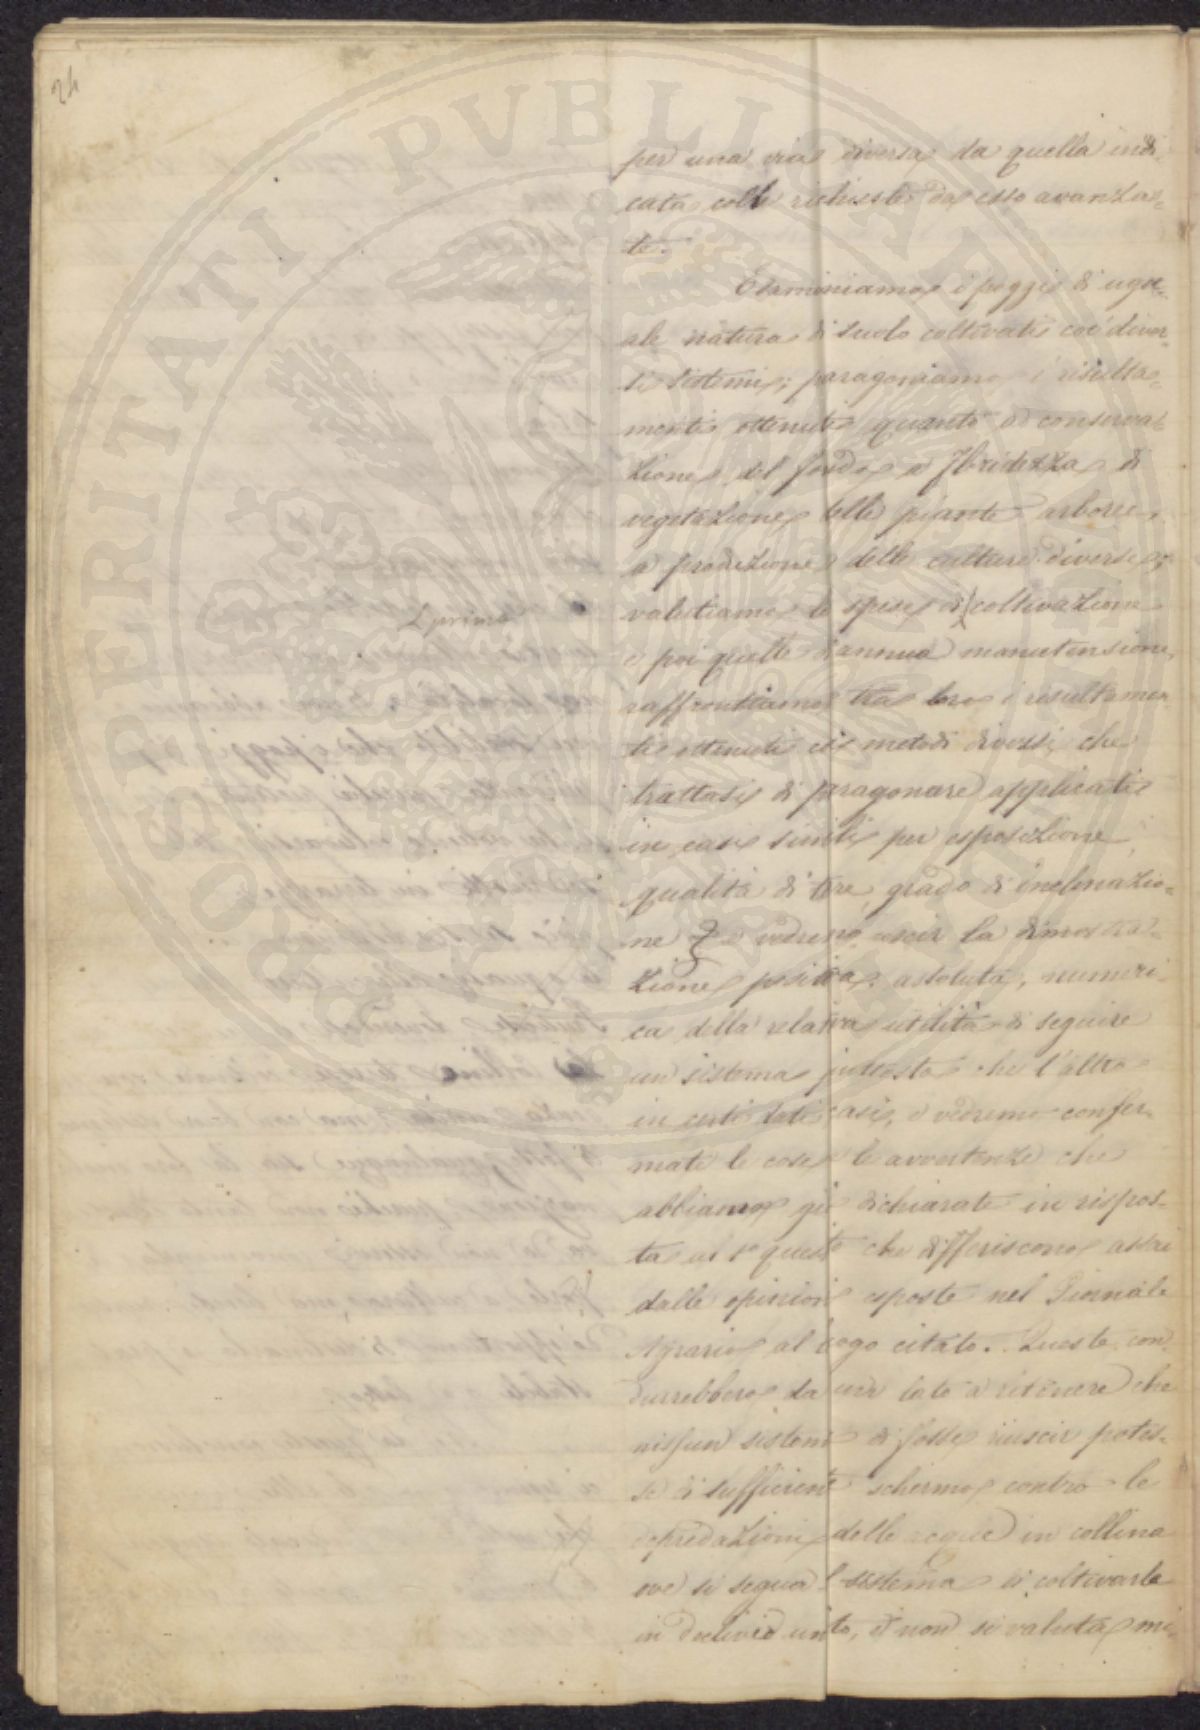 24
PROSPERITATI PVBLICAE AVGENDAE
per una via diversa da quella indi-
cata colle richieste da esso avanza-
te.
Esaminiamo i poggi di ugu-
ale natura di suolo coltivati coi diver-
si sistemi; paragoniamo i risulta-
menti ottenuti quanto a conserva-
zione del fondo a floridezza di
vegetazione delle piante arboree,
a produzione delle culture diverse;
valutiamo le spese di coltivazione
e poi quelle d'annua manutensione,
raffrontiamo tra loro i resultamen
ti ottenuti coi metodi diversi che
trattasi di paragonare applicati
in casi simili per esposizione,
qualità di terre, grado di inclinazio-
ne e vedremo uscir la dimostra-
zione positiva, assoluta, numeri-
ca della relativa utilità di seguire
un sistema piuttosto che l'altro
in certi dati casi, e vedremo confer-
mate le cose e le avvertenze che
abbiamo già dichiarate in rispos-
ta al 1º quesito che differiscono assai
dalle opinioni esposte nel Giornale
Agrario al luogo citato. Queste con
durrebbero da un lato a ritenere che
nissun sistema di fosse riuscir potes-
se di sufficiente schermo contro le
depredazioni delle acque in collina
ove si segua il sistema di coltivarla
in declivio unito, e non si valuta mi-